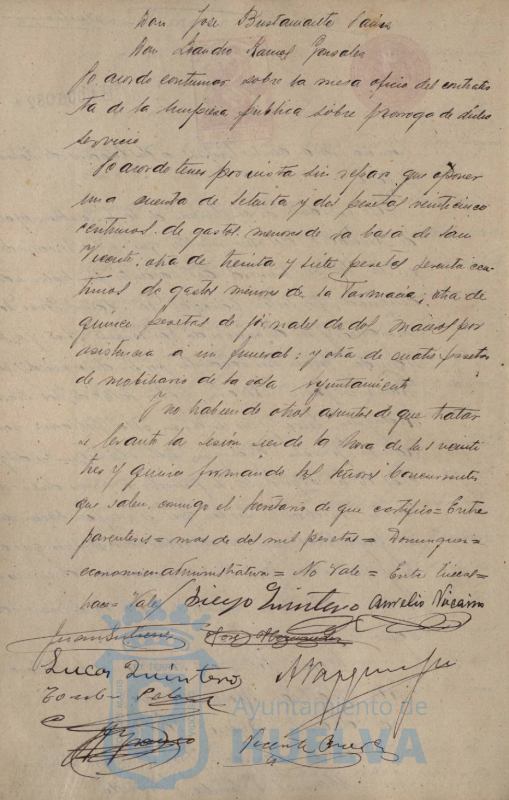 Don Jose Bustamante
Don Leandro Ramos Gonzalez
Se acordo continuar sobre la mesa oficio del contratis
ta de la limpieza pública sobre prorroga de dicho
servicio
Se acordo tener por vista sin reparo que oponer
una cuenta de setenta y dos pesetas veinticinco
centimos de gastos menores de la casa de San
Vicente, otra de treinta y siete pesetas sesenta cen
timos de gastos menores de la Farmacia; otra de
quince pesetas de jornales de dos por
asistencia a un funeral; y otra de cuatro pesetas
de mobiliario de la casa ayuntamiento
Y no habiendo otros asuntos de que tratar
se levantó la sesión siendo la hora de las veinti
tres y quince firmando los señores Concurrentes
que saben, conmigo el Secretario de que certifico = Entre
parentesis = mas de dos mil pesetas = Dominguez =
economico administrativa = No Vale = Entre lineas =
Vale/ Diego Quintero Aurelio Vizcaino
Juan Gutierrez Jose Hernandez
Lucas Quintero
Vicente
Ayuntamiento de
HUELVA